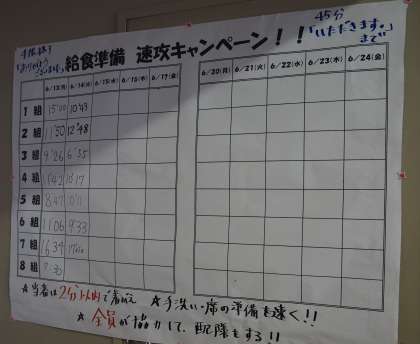 給食準備 速攻キャンペーン！！
45分
「いただきます。」
まで
6/13(月) 6/14(火) 6/15(水) 6/16(木) 6/17(金)
6/20(月) 6/21(火) 6/22(水) 6/23(木) 6/24(金)
1 組 15'00 10'43
2 組 11'50 12'48
3 組 9'26 6'35
4 組 10'17
5 組 8'47
6 組 11'06 9'33
7 組 16'34
8 組
☆当番は2分以内で着がえ ☆手洗い・席の準備を速く!!
☆全員が協力して、配膳をする!!